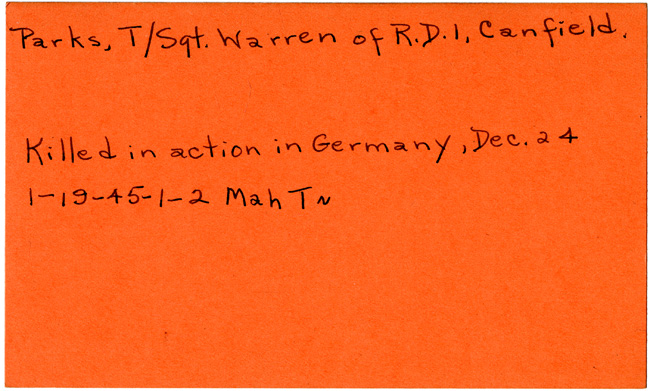 Parks, T/Sgt. Warren of R.D.1, Canfield.
Killed in action in Germany, Dec. 24
1-19-45-1-2 Mah T~